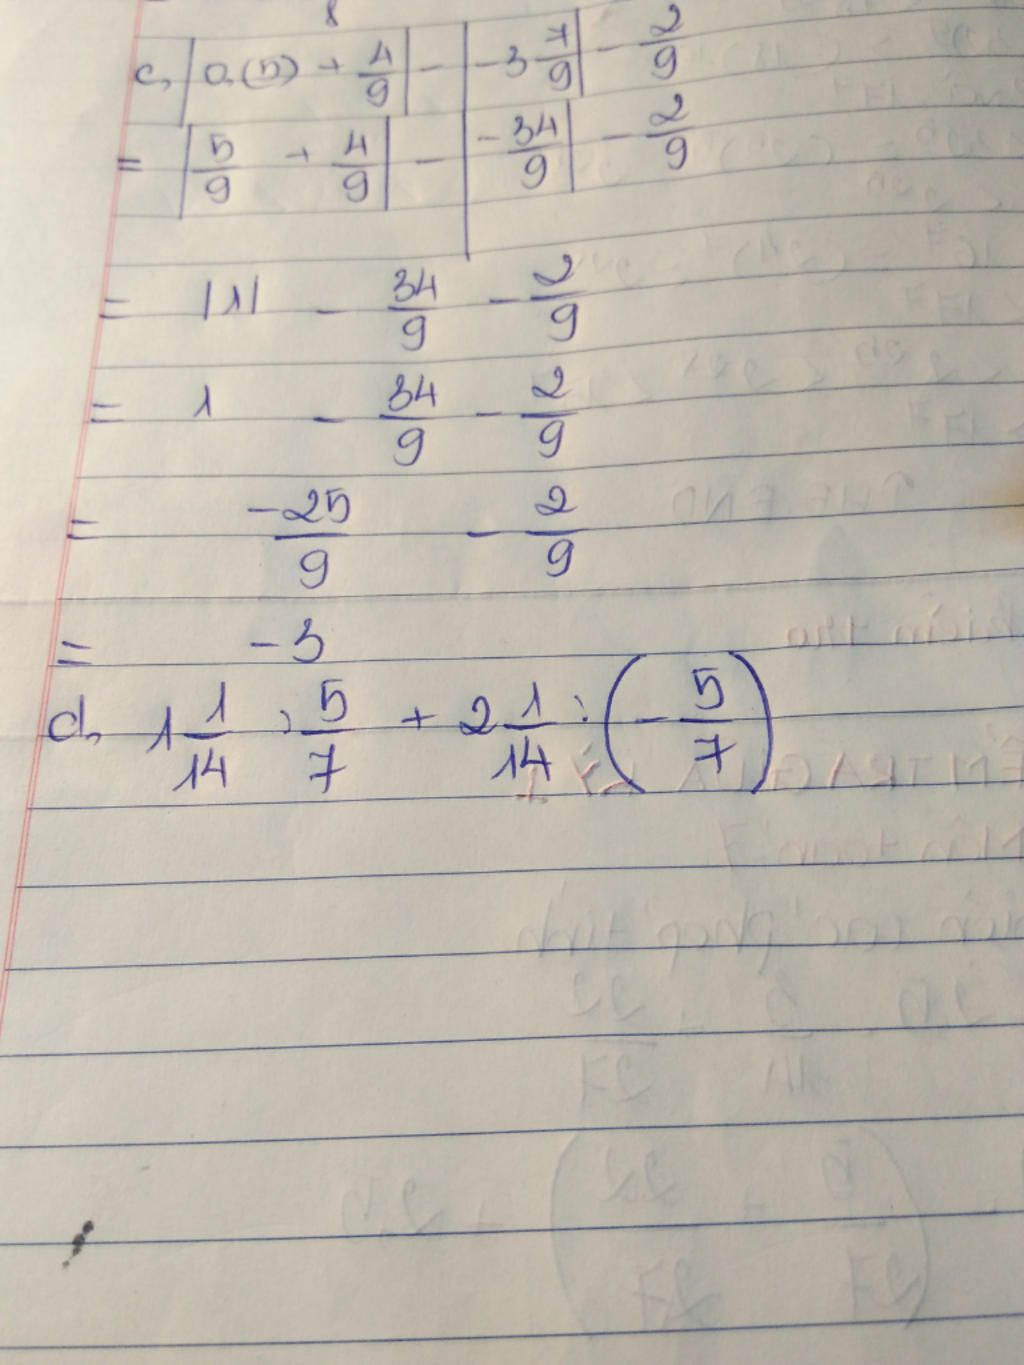 8
c, |0,(5) + 4/9| - |-3 7/9| - 2/9
= |5/9 + 4/9| - |-34/9| - 2/9
= |1| - 34/9 - 2/9
= 1 - 34/9 - 2/9
= -25/9 - 2/9
= -3
d, 1 1/14 : 5/7 + 2 1/14 : (-5/7)